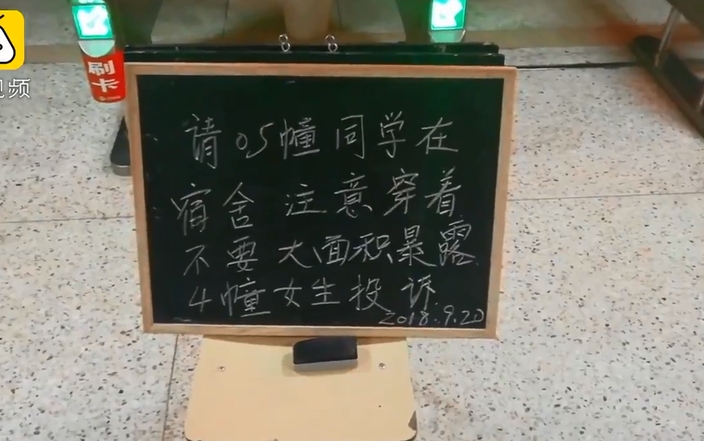 视频
刷
卡
请05幢同学在
宿舍 注意穿着
不要大面积暴露
4幢女生投诉
2018.9.20